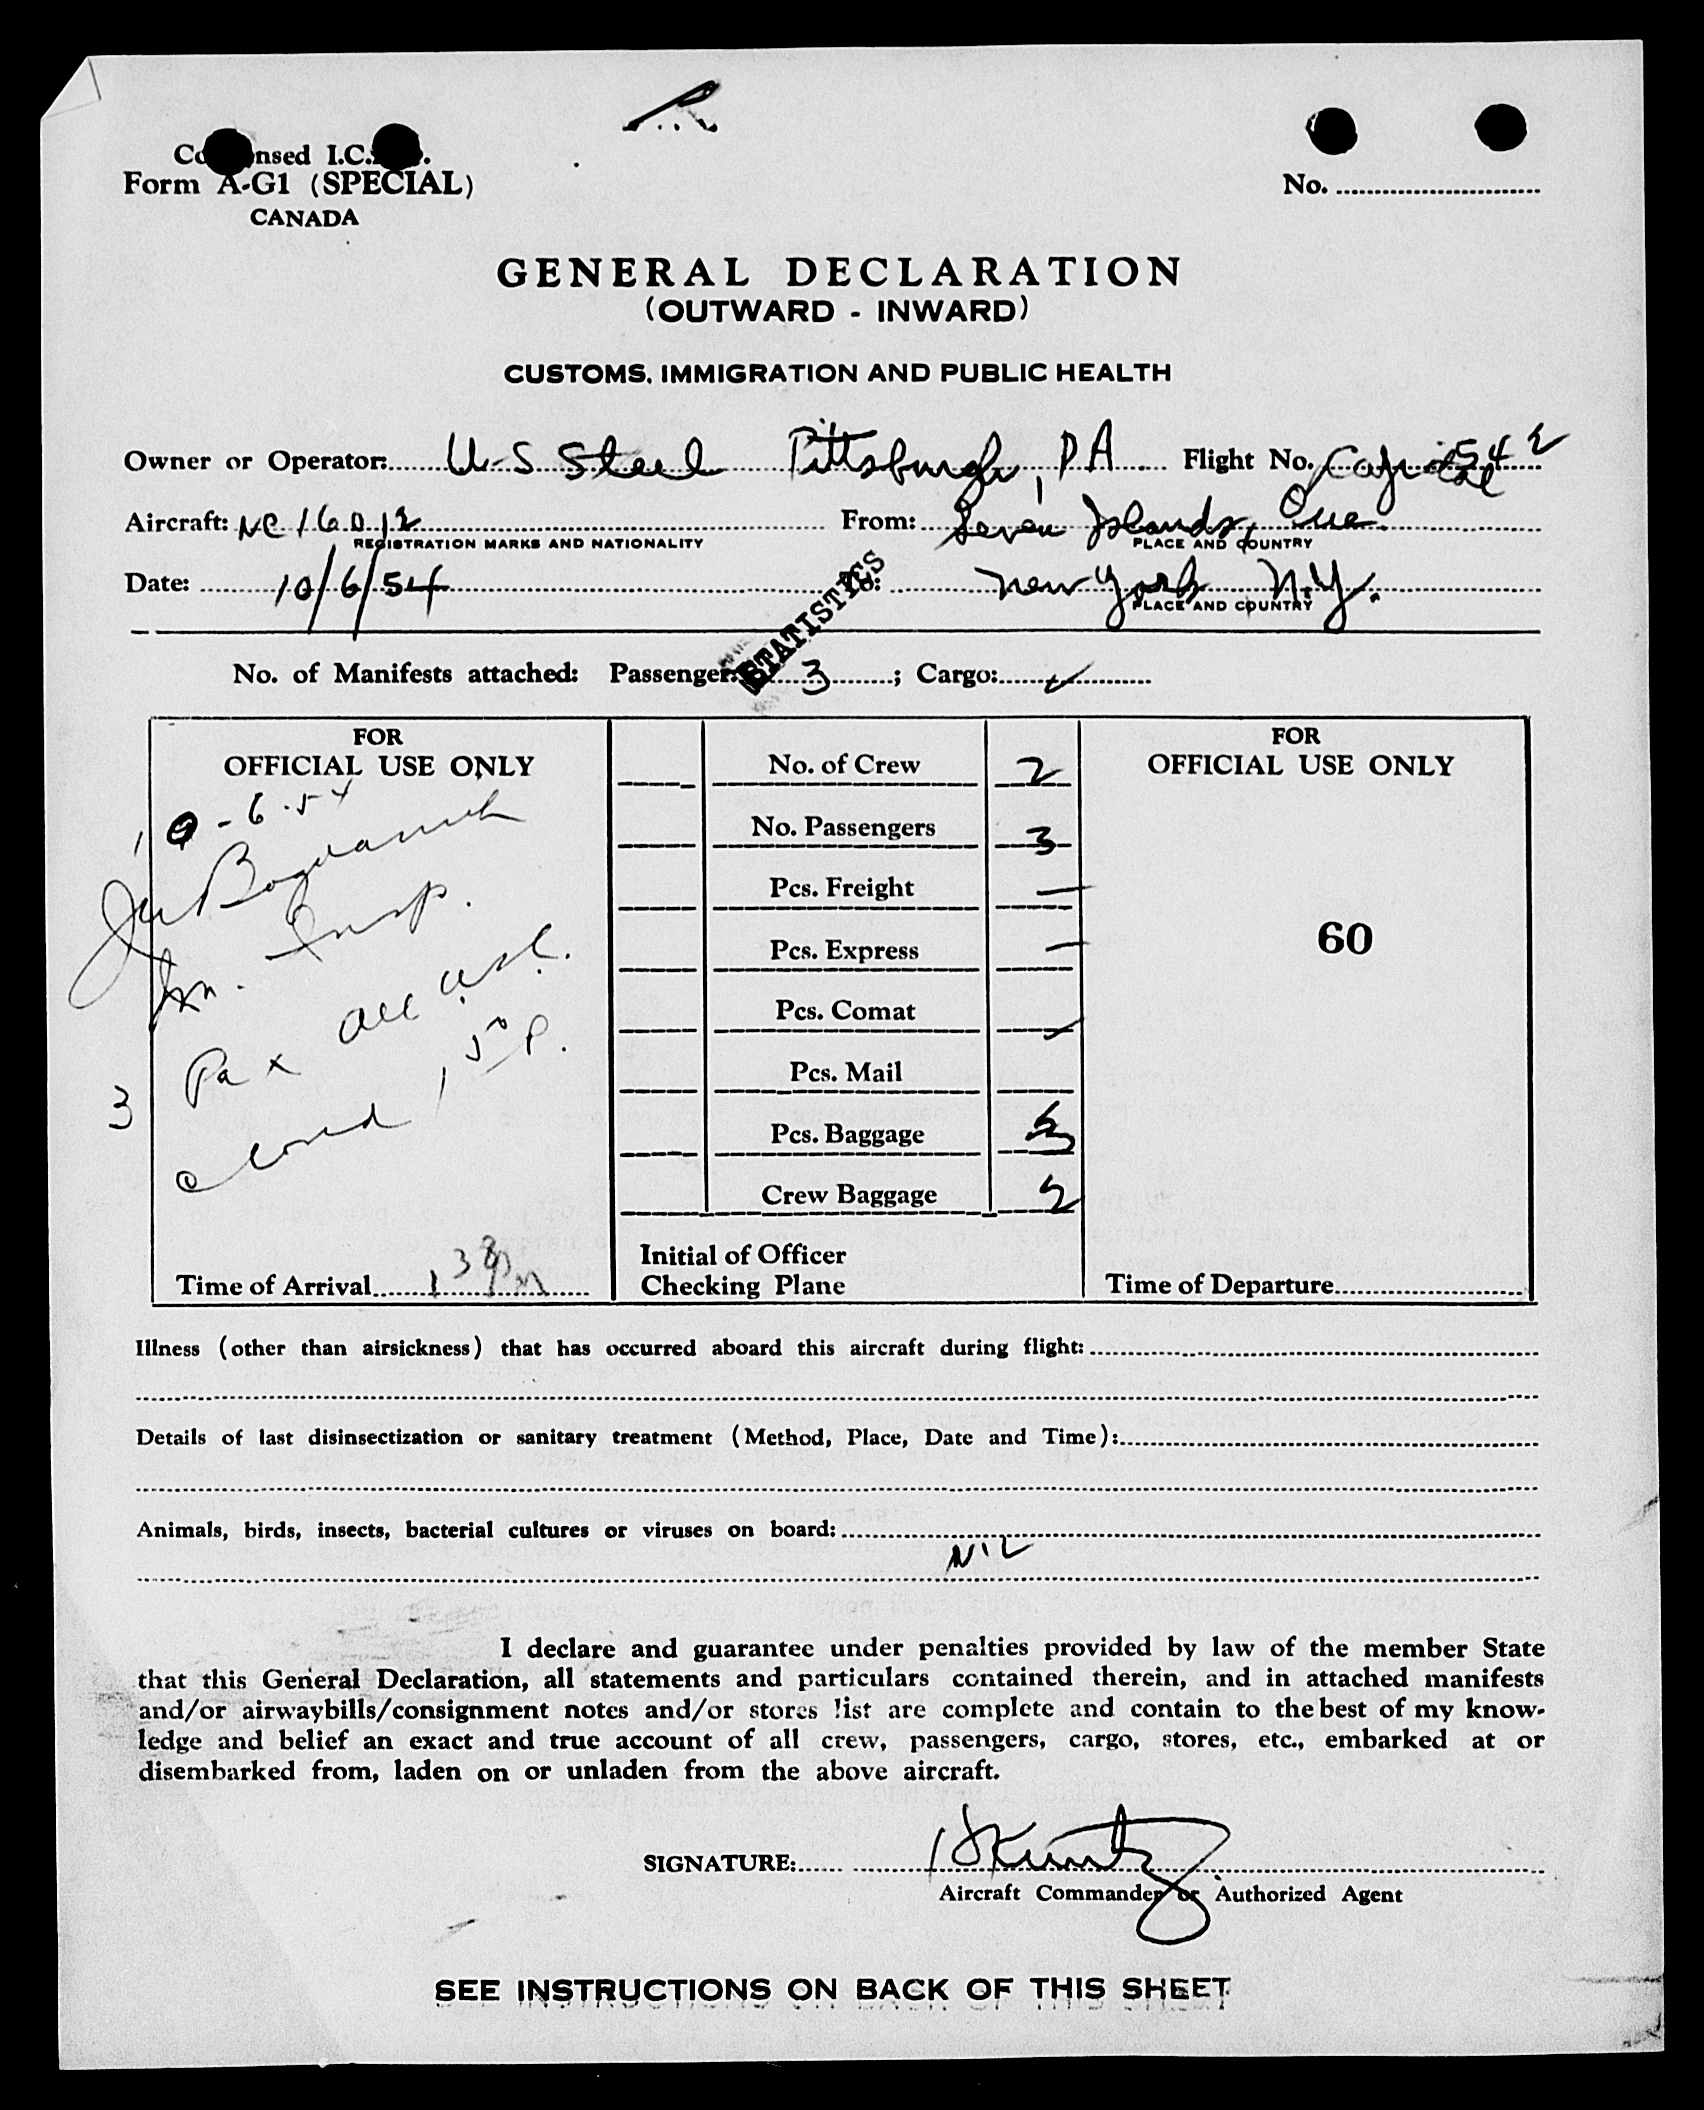 Form A-G1 (SPECIAL)
CANADA
No.
GENERAL DECLARATION
(OUTWARD - INWARD)
CUSTOMS, IMMIGRATION AND PUBLIC HEALTH
Owner or Operator: U-S Steel Pittsburgh, PA Flight No.
Aircraft: NC 16012 From: Seven Islands, Que.
REGISTRATION MARKS AND NATIONALITY PLACE AND COUNTRY
Date: 10/6/54 To: New York N.Y.
PLACE AND COUNTRY
STATISTICS
No. of Manifests attached: Passenger: 3; Cargo:
FOR
OFFICIAL USE ONLY
10-6-54
Insp.
3 Pax all U.S.C.
closed 1 50 P.
Time of Arrival
No. of Crew 2
No. Passengers 3
Pcs. Freight —
Pcs. Express —
Pcs. Comat
Pcs. Mail
Pcs. Baggage
Crew Baggage 2
Initial of Officer
Checking Plane
FOR
OFFICIAL USE ONLY
60
Time of Departure
Illness (other than airsickness) that has occurred aboard this aircraft during flight:
Details of last disinsectization or sanitary treatment (Method, Place, Date and Time):
Animals, birds, insects, bacterial cultures or viruses on board:
NIL
I declare and guarantee under penalties provided by law of the member State
that this General Declaration, all statements and particulars contained therein, and in attached manifests
and/or airwaybills/consignment notes and/or stores list are complete and contain to the best of my know-
ledge and belief an exact and true account of all crew, passengers, cargo, stores, etc., embarked at or
disembarked from, laden on or unladen from the above aircraft.
SIGNATURE: Kuntz
Aircraft Commander or Authorized Agent
SEE INSTRUCTIONS ON BACK OF THIS SHEET